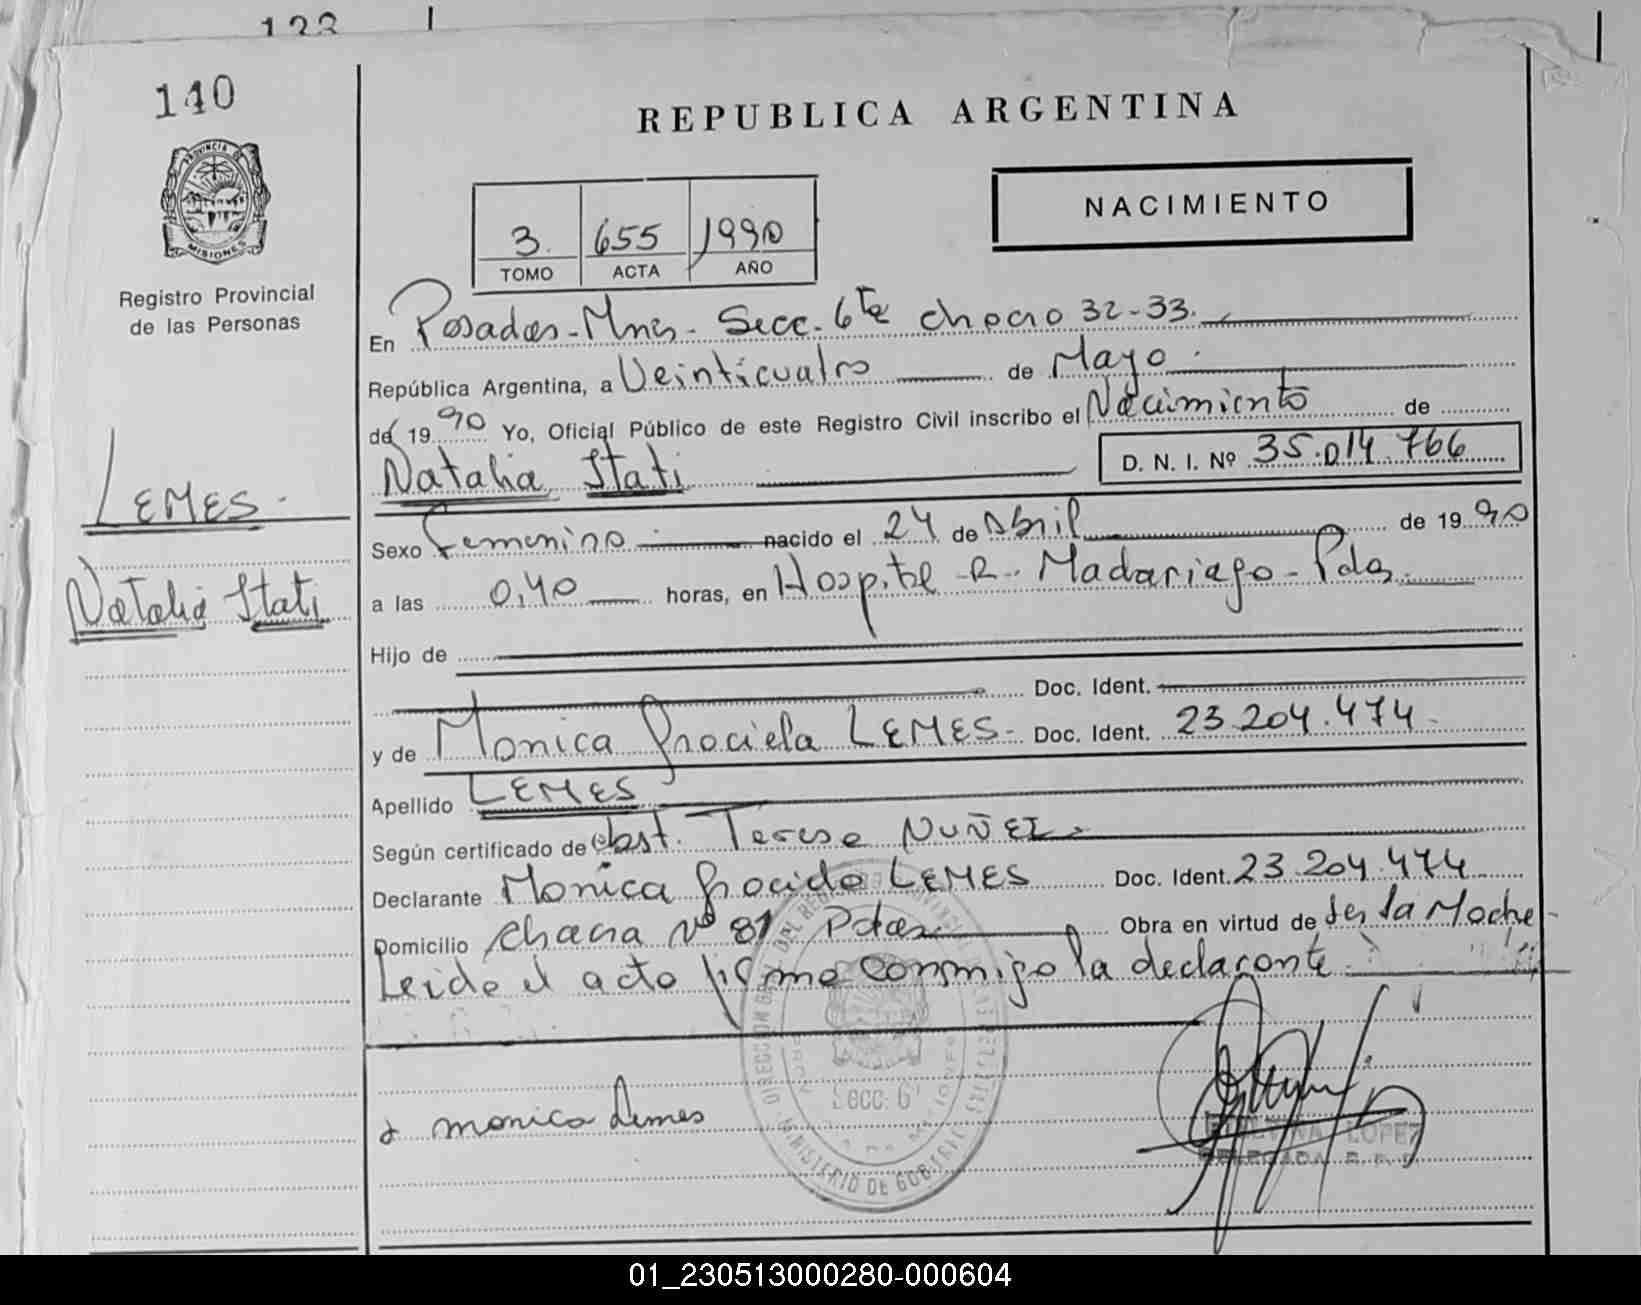 123
140
REPUBLICA ARGENTINA
NACIMIENTO
3. 655 1990
TOMO ACTA AÑO
PROVINCIA DE
MISIONES
Registro Provincial
de las Personas
En Posadas - Mnes - Secc. 6ta chacra 32-33.
República Argentina, a Veinticuatro de Mayo.
de 19 90 Yo, Oficial Público de este Registro Civil inscribo el Nacimiento de
Natalia Itati D. N. I. Nº 35.014.766
LEMES -
Sexo Femenino nacido el 24 de Abril de 19 90
Natalia Itati
a las 0,40 horas, en Hospital R. Madariaga - Pdas.
Hijo de
Doc. Ident.
y de Monica Graciela LEMES - Doc. Ident. 23.204.474 -
Apellido LEMES
Según certificado de obst. Teresa NUÑEZ.
Declarante Monica Graciela LEMES Doc. Ident. 23.204.474
Domicilio chacra Nº 81 Pdas. Obra en virtud de ser la Madre -
Leida el acta firma conmigo la declarante.
Secc. 6
MINISTERIO DE GOBIERNO
monica Lemes
LOPEZ
DELEGADA
01_230513000280-000604